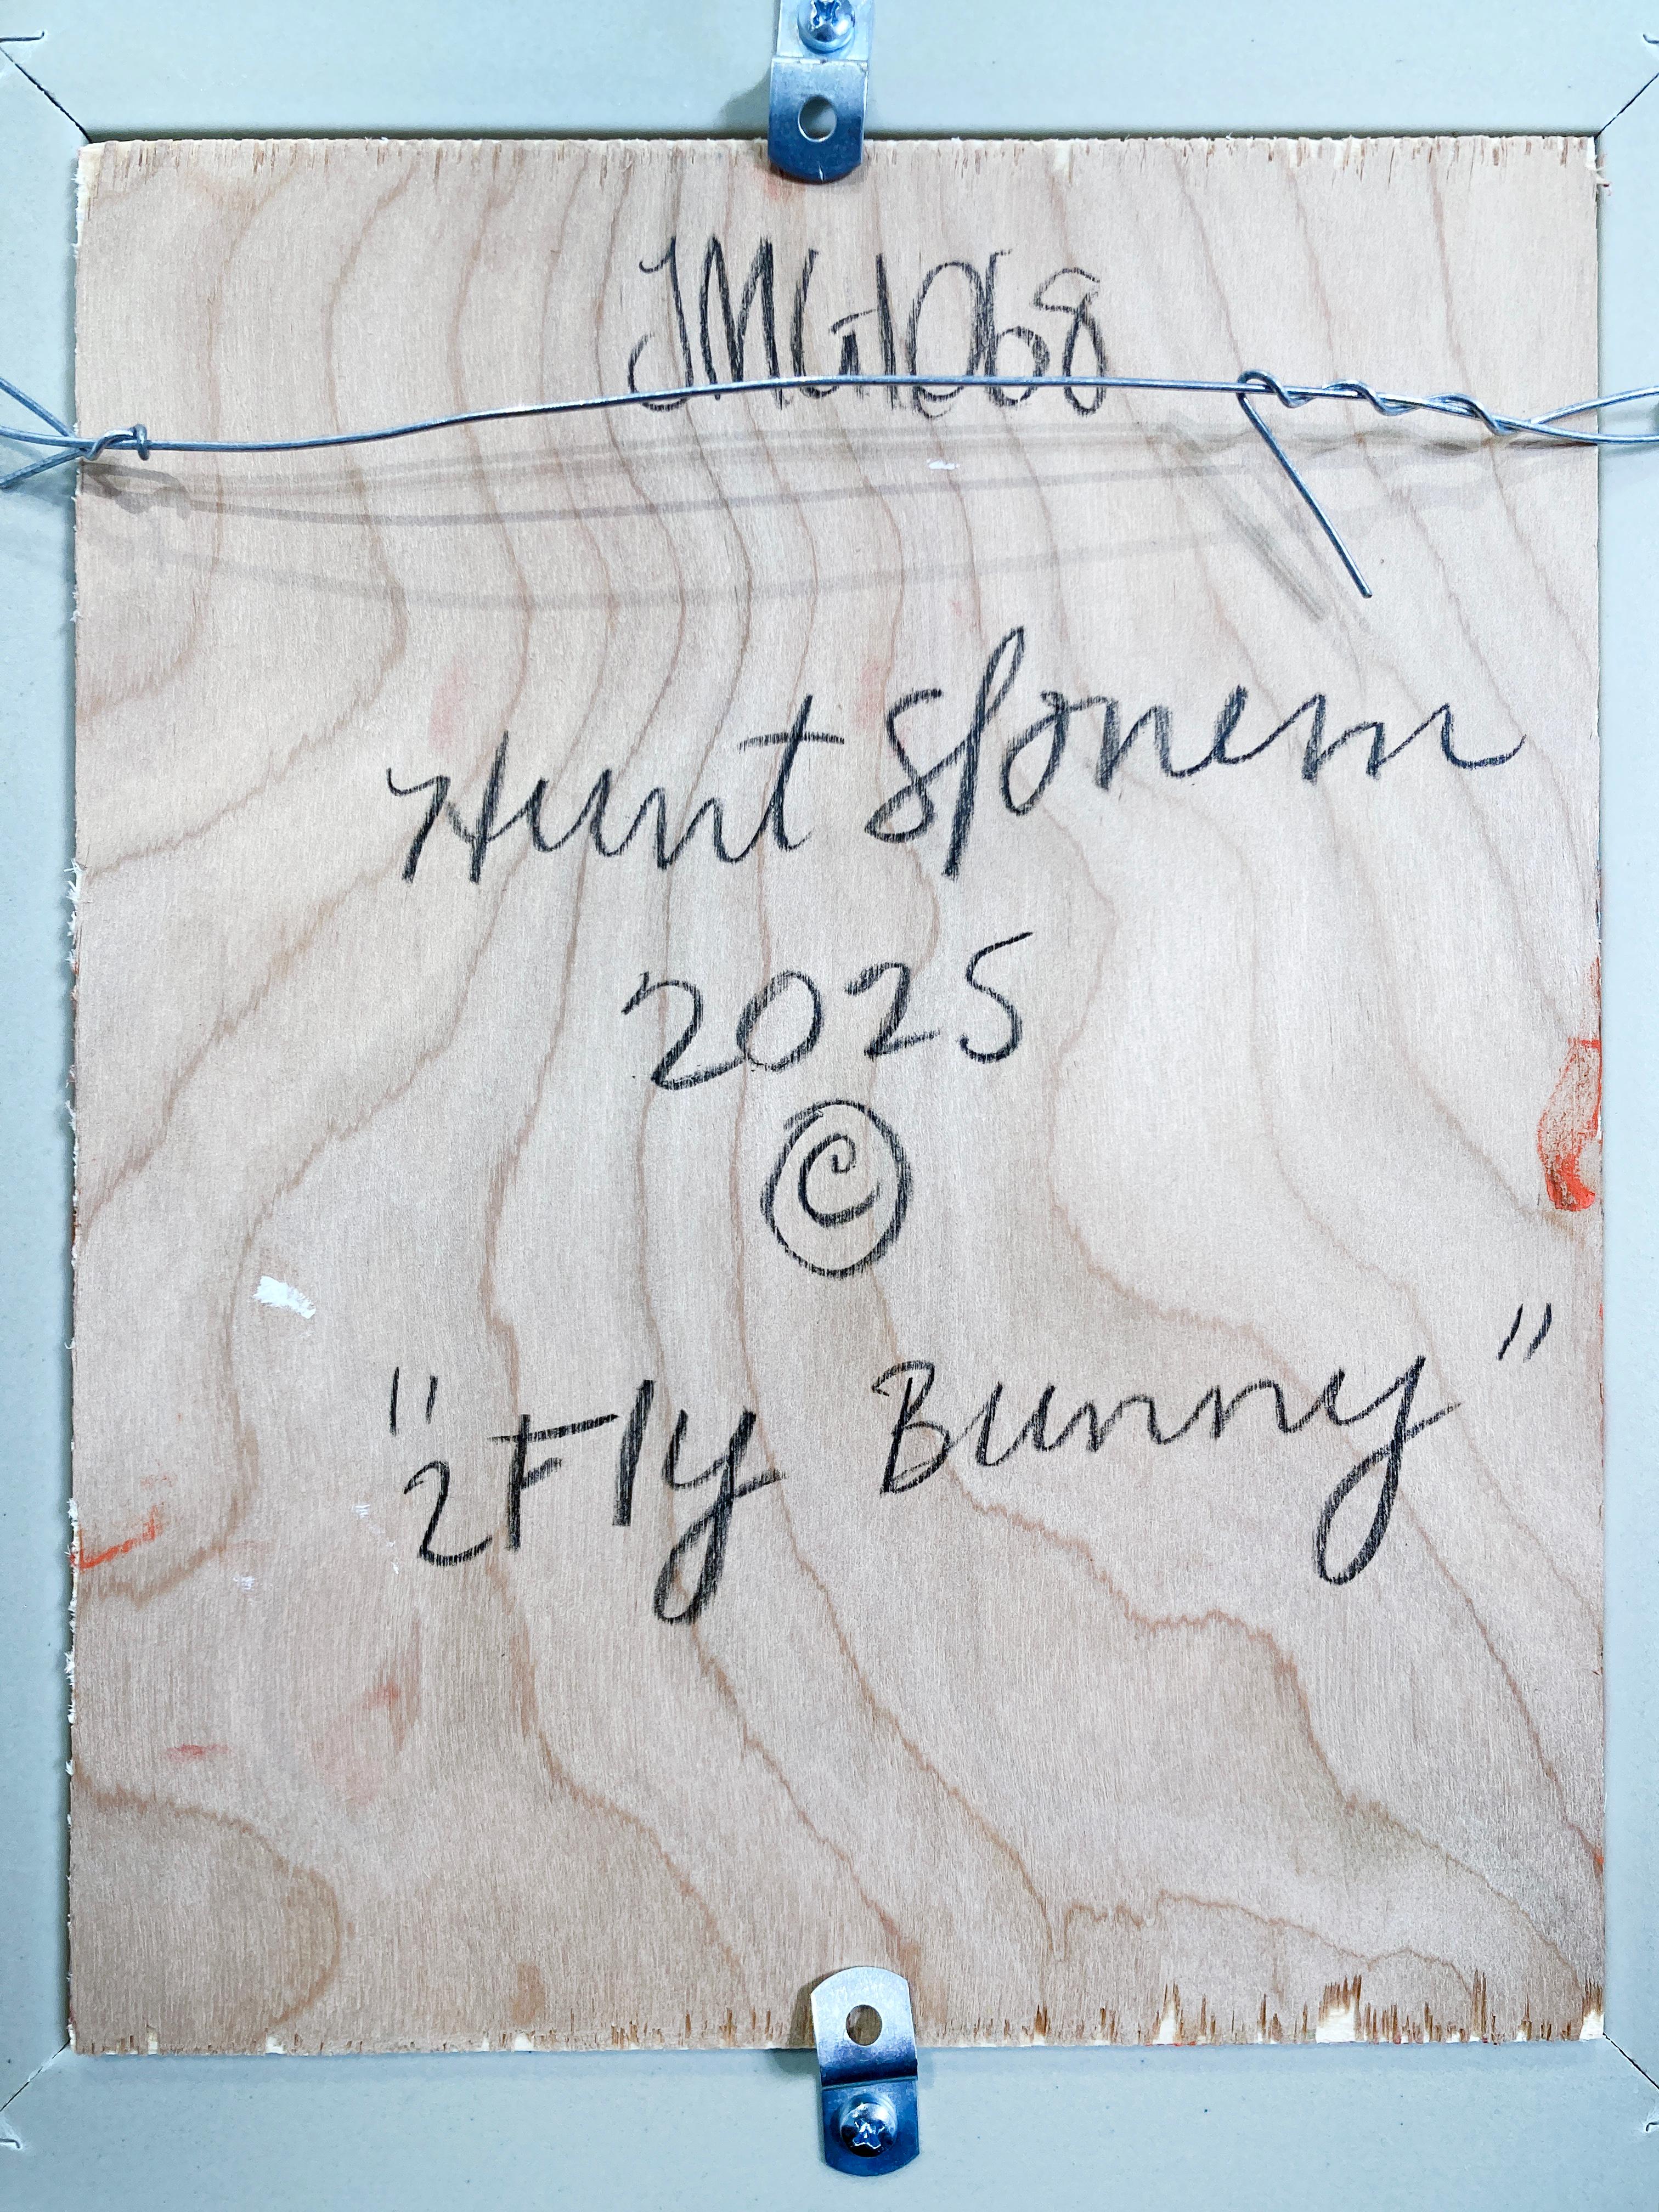 JMG1068
Hunt Slonem
2025
©
"2 Fly Bunny"